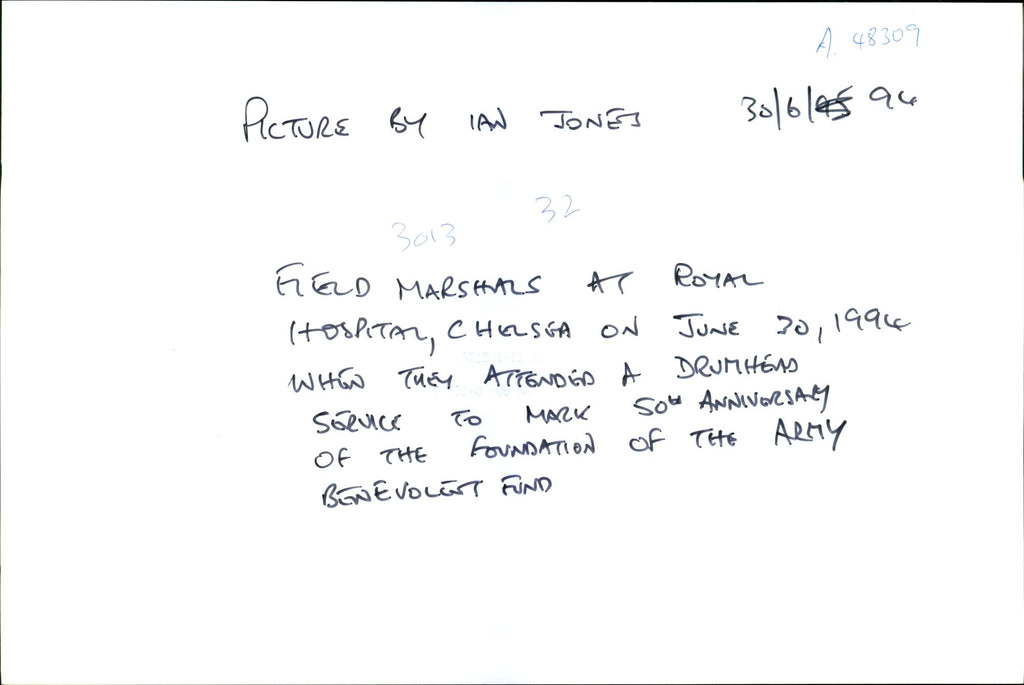 A. 48309
PICTURE BY IAN JONES 30/6/94
32
3013
FIELD MARSHALS AT ROYAL
HOSPITAL, CHELSEA ON JUNE 30, 1994
WHEN THEY ATTENDED A DRUMHEAD
SERVICE TO MARK 50th ANNIVERSARY
OF THE FOUNDATION OF THE ARMY
BENEVOLENT FUND